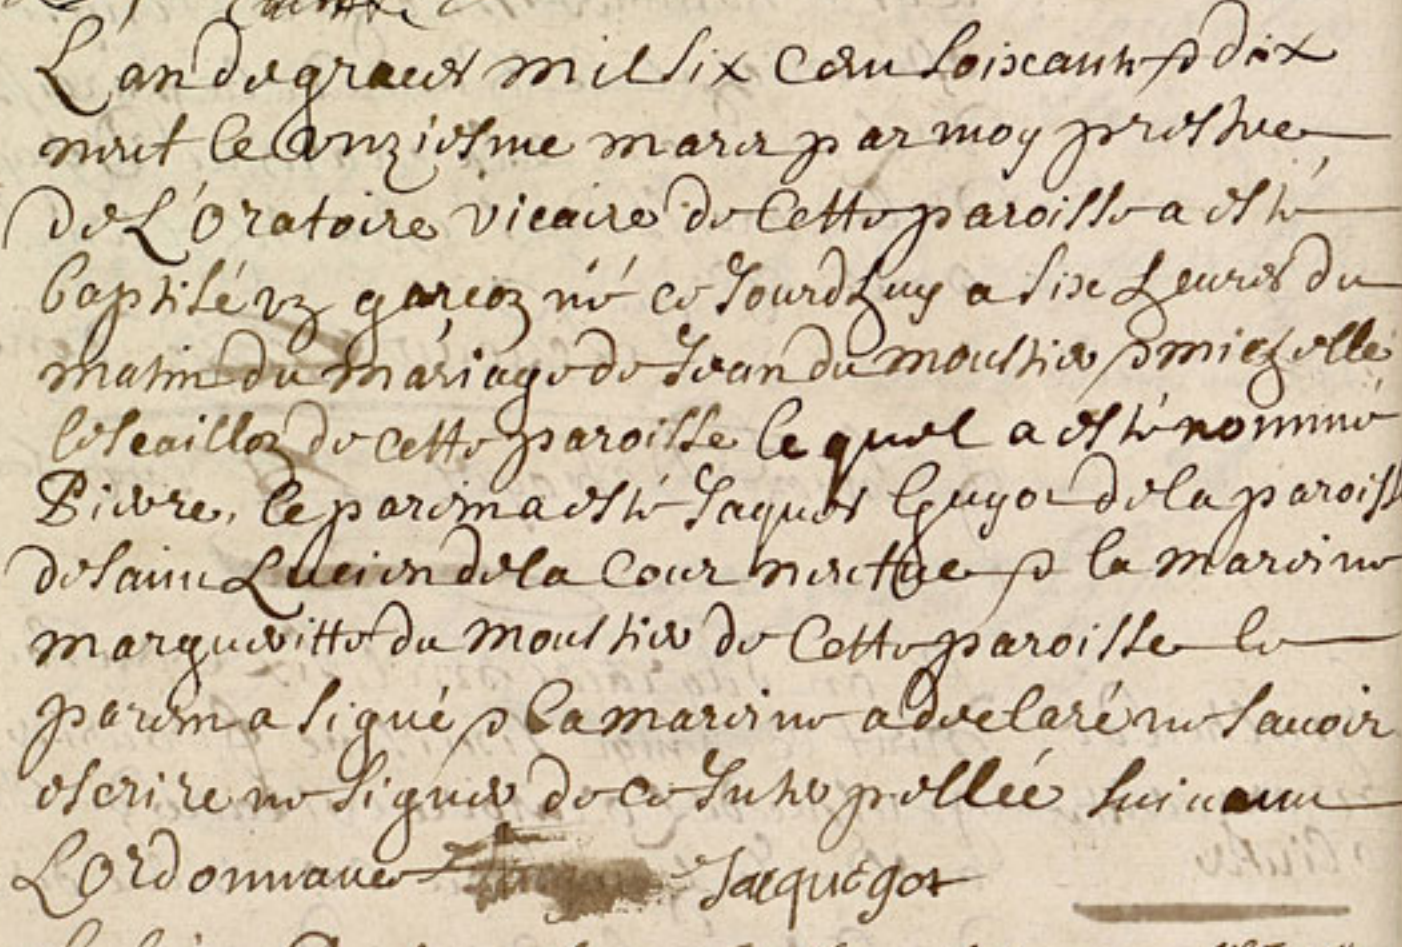 L'an de grace mil six cens soixante & dix
neuf le onziesme mars par moy prestre
de L'oratoire vicaire de Cette paroisse a esté
baptisé vn garcon né ce Jourd'huy a six heures du
matin du mariage de Jean du moustier & michelle
lescaillon de cette paroisse le quel a esté nommé
Pierre, le parein a esté Jaques Guyot de la paroisse
de saint Lucien de la Cour neufve & la mareine
margueritte du moustier de Cette paroisse le
parein a signé & la mareine a declaré ne sauoir
escrire ne signer de ce Interpellée suiuant
L'ordonnance